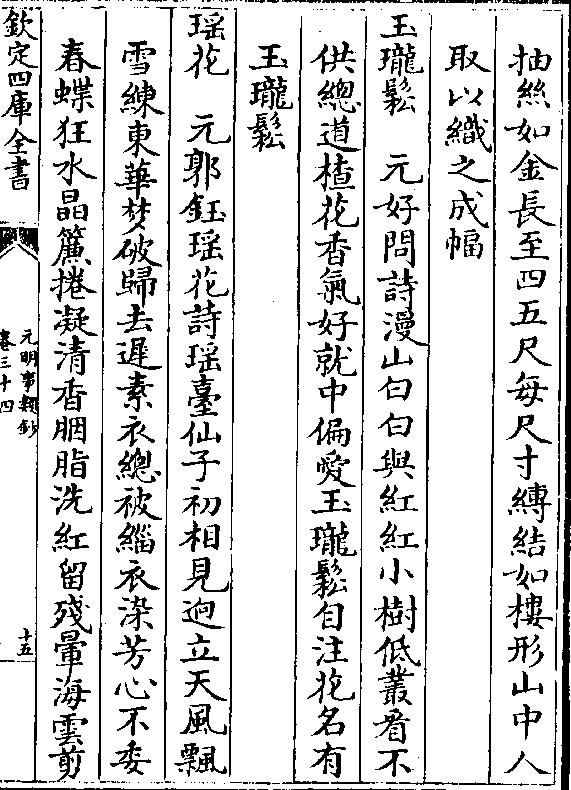 抽絲如金長至四五尺每尺寸縳結如樓形山中人
取以織之成幅
玉瓏鬆　元好問詩漫山白白與紅紅小樹低叢看不
供總道楂花香氣好就中偏愛玉瓏鬆自注花名有
玉瓏鬆
瑶花　元郭鈺瑶花詩瑶臺仙子初相見逈立天風飄
雪練東華梦破歸去遲素衣總被緇衣染芳心不委
春蝶狂水晶簾捲凝清香胭脂洗紅留殘暈海雲剪
欽定四庫全書
元明事類鈔
卷三十四
十五